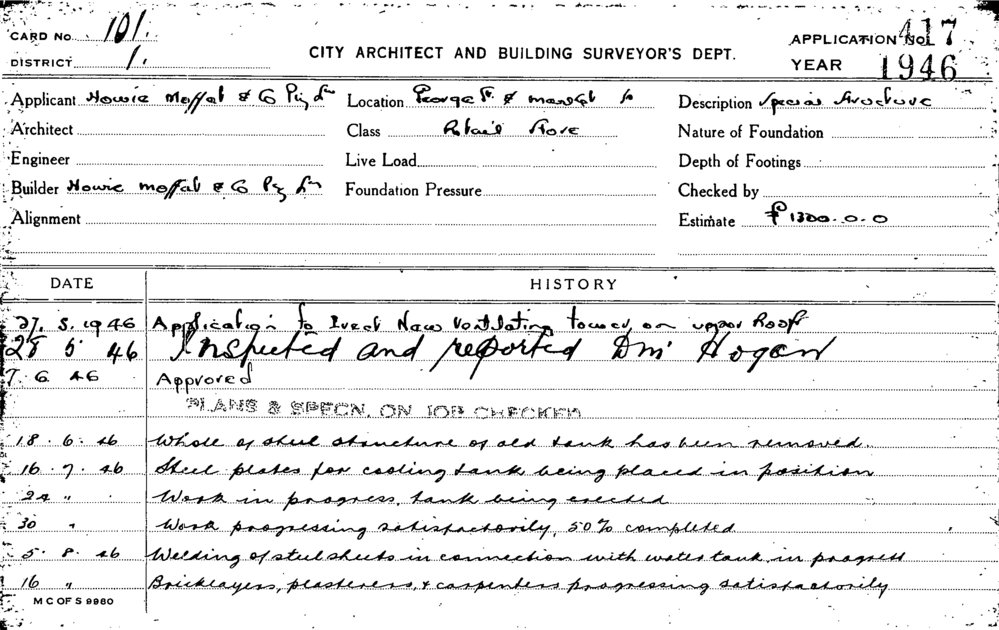 CARD No. 101.
APPLICATION No. 417
DISTRICT 1.
CITY ARCHITECT AND BUILDING SURVEYOR'S DEPT.
YEAR 1946
Applicant Howie Moffat & Co Pty Ltd
Location George St. & Market St
Description Special Structure
Architect
Class Retail Store
Nature of Foundation
Engineer
Live Load
Depth of Footings
Builder Howie Moffat & Co Pty Ltd
Foundation Pressure
Checked by
Alignment
Estimate £1300.0.0
DATE HISTORY
27. 5. 1946 Application to Erect New Ventilating tower on upper Roof
28 5 46 Inspected and reported Dm Hogan
7. 6 46 Approved
PLANS & SPECN. ON JOB CHECKED
18. 6. 46 Whole of steel structure of old tank has been removed.
16. 7. 46 Steel plates for cooling tank being placed in position
24 " Work in progress, tank being erected
30 " Work progressing satisfactorily, 50% completed
5. 8. 46 Welding of steel sheets in connection with water tank in progress
16 " Bricklayers, plasterers, & carpenters progressing satisfactorily
M C OF S 9980